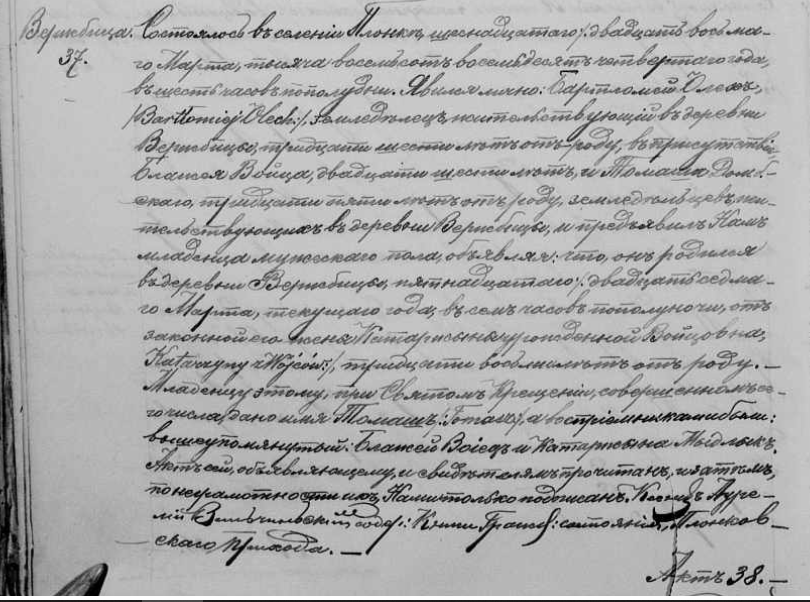 Вержбица.
37.
Состоялось въ селеніи Плонкѣ, шеснадцатаго /: двадцать восьма-
го Марта, тысяча восемьсотъ восемьдесятъ четвертаго года,
въ шесть часовъ пополудни. Явился лично: Бартломей Олехъ,
/Bartłomiej Olech:/, земледѣлецъ, жительствующій въ деревни
Вержбицы, тридцати шести лѣтъ отъ роду, въ присутствіи
Блажея Войца, двадцати шести лѣтъ, и Томаша Домб-
скаго, тридцати пяти лѣтъ отъ роду, земледѣльцевъ, жи-
тельствующихъ въ деревни Вержбицы, и предъявилъ Намъ
младенца мужескаго пола, объявляя: что, онъ родился
въ деревни Вержбицы, пятнадцатаго /: двадцать седьма-
го Марта, текущаго года, въ семь часовъ пополуночи, отъ
законной его жены Катаржины урожденной Войцовны,
Katarzyny z Wojców:/, тридцати восьми лѣтъ отъ роду. –
Младенцу этому, при Святомъ Крещеніи, совершенномъ се-
го числа, дано имя Томашъ, а воспріемниками были:
вышеупомянутый: Блажей Воіецъ и Катаржына Мыдлыкъ.
Актъ сей, объявляющему, и свидѣтелямъ прочитанъ, и затѣмъ,
по неграмотности ихъ, Нами только подписанъ. Ксендзъ Ауре-
лій содер: Книги Гражд: состоянія, Плонков-
скаго прихода. –
Актъ 38. –